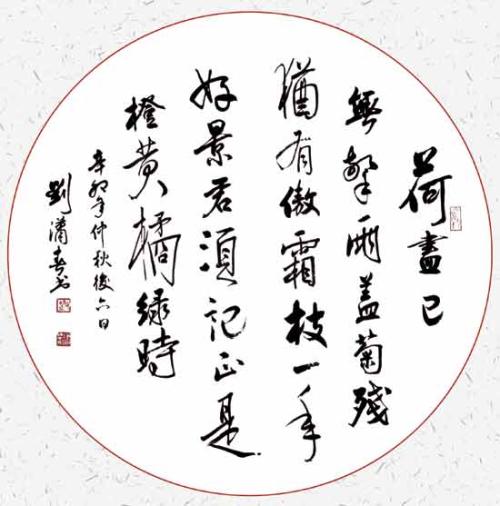 荷盡已
無擎雨蓋菊殘
猶有傲霜枝一年
好景君須記正是
橙黃橘綠時
辛卯年仲秋後六日
劉瀟